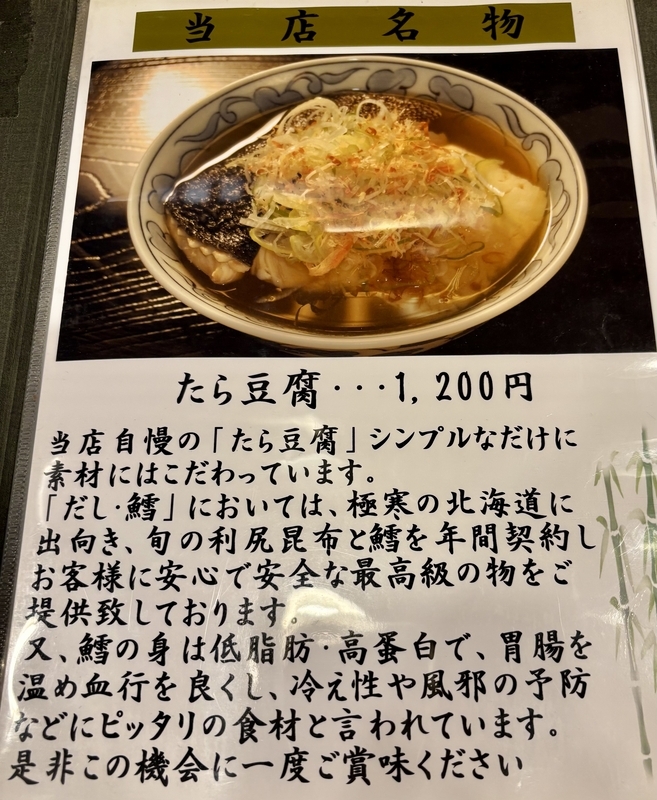 当店名物
たら豆腐・・・1,200円
当店自慢の「たら豆腐」シンプルなだけに
素材にはこだわっています。
「だし・鱈」においては、極寒の北海道に
出向き、旬の利尻昆布と鱈を年間契約し
お客様に安心で安全な最高級の物をご
提供致しております。
又、鱈の身は低脂肪・高蛋白で、胃腸を
温め血行を良くし、冷え性や風邪の予防
などにピッタリの食材と言われています。
是非この機会に一度ご賞味ください